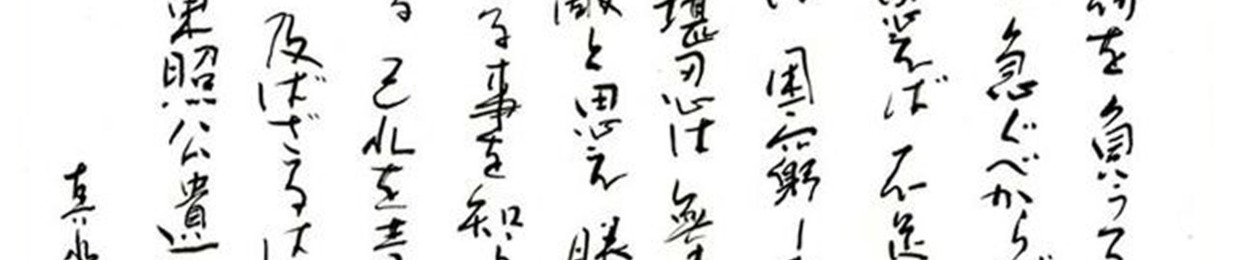 を負うて
急ぐべから
思えば不
困窮し
堪忍は無
敵と思え勝
る事を知
る己れを責
及ばざるは
東照公遺
真